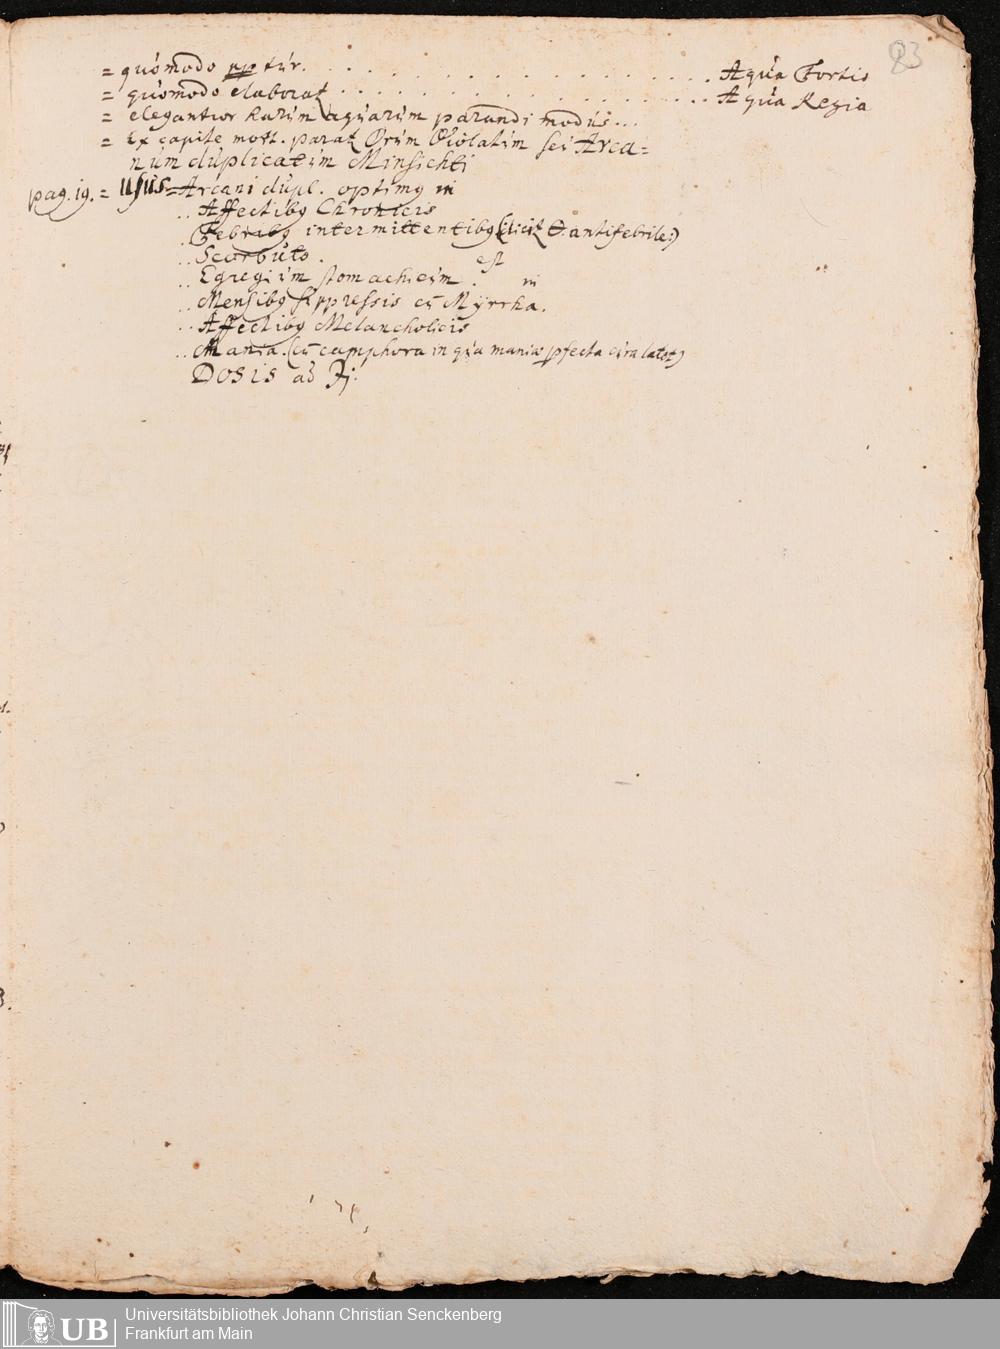 83
= quómodo pptúr. . . . . . . . . . . . . . . . . . Aqúa Fortis
= qúomodo elaboratꝫ . . . . . . . . . . . . . . . . . . Aqúa Regia
= elegantior harúm aqúarúm parandi modús...
= Ex capite mort. paratꝫ Violatúm seú Arca=
núm dúplicatúm Minsichti
pag. 19. = Usus = Arcani dúpl. optimꝰ in
.. Affectibꝰ Chronicis
. Febribꝰ intermittentibꝰ antifebrile:)
.. Scorbúto .
.. Egregiúm stomachicúm est . in
.. Mensibꝰ súppressis cú Myrrha.
.. Affectibꝰ Melancholicis
.. Mania. (cú camphora in qúa maniæ pfecta cúra latet)
DOSIS ad ʒj.
Universitätsbibliothek Johann Christian Senckenberg
Frankfurt am Main
UB